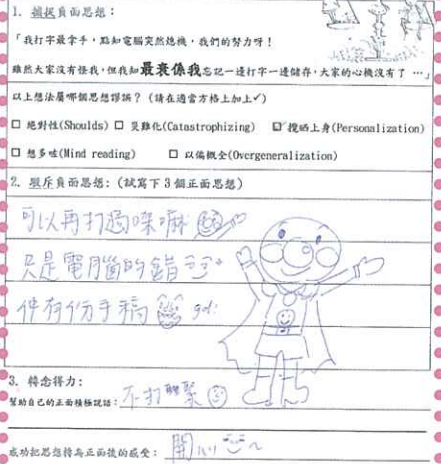 1. 捕捉負面思想：
「我打字最拿手，點知電腦突然熄機，我們的努力呀！
雖然大家沒有怪我，但我知最衰係我忘記一邊打字一邊儲存，大家的心機沒有了 …」
以上想法屬哪個思想謬誤？（請在適當方格上加上✓）
□ 絕對性(Shoulds) □ 災難化(Catastrophizing) ☑ 攬晒上身(Personalization)
□ 想多咗(Mind reading) □ 以偏概全(Overgeneralization)
2. 駁斥負面思想：（試寫下 3 個正面思想）
可以再打過㗎嘛
只是電腦的錯
仲有份手稿
3. 轉念得力：
幫助自己的正面積極說話：不打緊
成功把思想轉為正面後的感受：開心